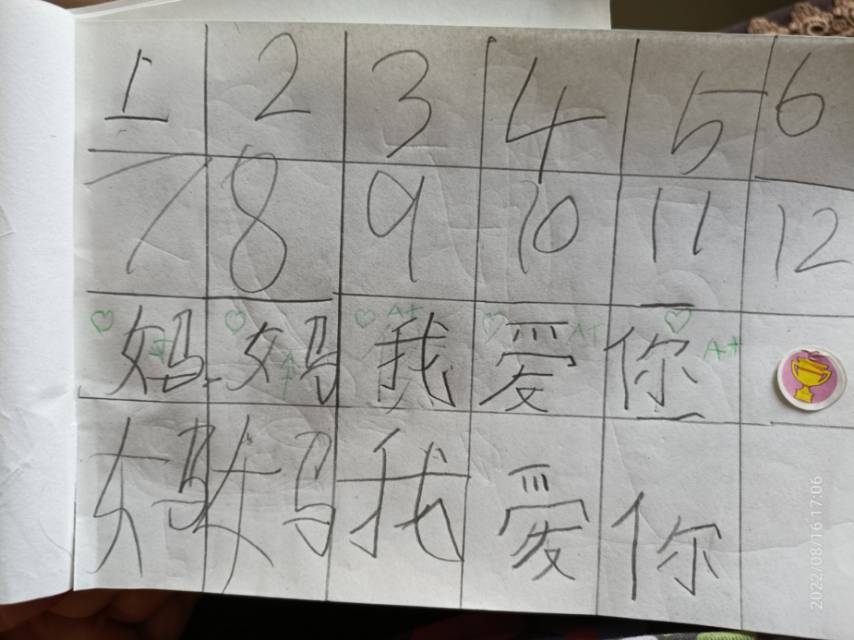 1 2 3 4 5 6
7 8 9 10 11 12
妈妈我爱你
A+ A+ A+ A+ A+
妈妈我爱你
2022/08/16 17:06